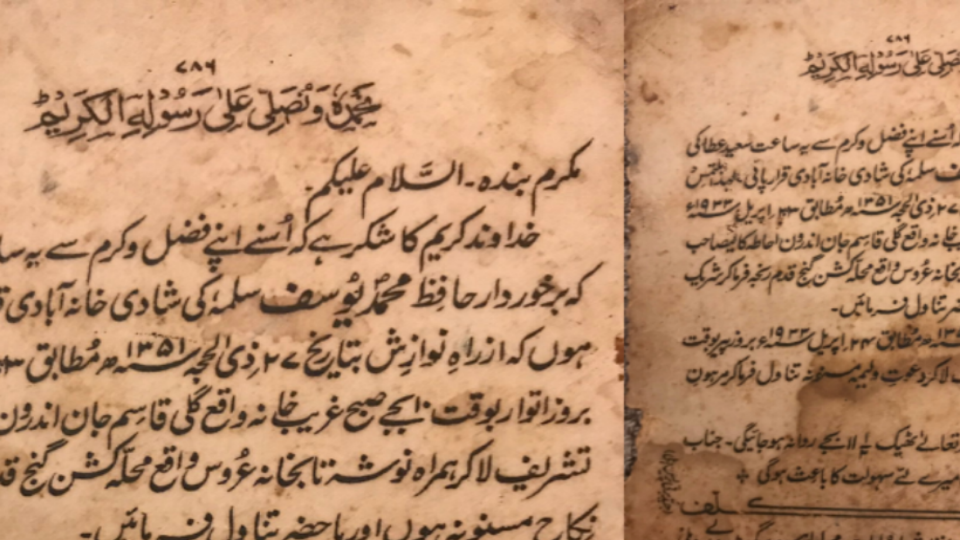 ۷۸۶
نحمدہٗ ونصلی علیٰ رسولہ الکریم
مکرم بندہ۔ السّلام علیکم
خداوند کریم کا شکر ہے کہ اُسنے اپنے فضل وکرم سے یہ سا
کہ برخوردار حافظ محمدؐ یُوسف سلمہٗ کی شادی خانہ آبادی ق
ہوں کہ ازراہِ نوازش بتاریخ ۲۷؍ذی الحجہ ۱۳۵۱ھ مُطابق
بروز اتوار بوقت ۱۰ بجے صبح غریب خانہ واقع گلی قاسم جان اندرون
تشریف لاکر ہمراہ نوشہ تابخانہ عرُوس واقع محلّہ کشن گنج قد
نکاح مسنونہ ہوں اور ماحضر تناول فرمائیں۔
۷۸۶
صلی علیٰ رسولہ الکریم
اُسنے اپنے فضل وکرم سے یہ ساعت سعید عطا کی
ف سلمہٗ کی شادی خانہ آبادی قرار پائی۔ لہٰذا ملتمس
۲۷؍ذی الحجہ ۱۳۵۱ھ مُطابق ۲۳؍اپریل ۱۹۳۳ء
خانہ واقع گلی قاسم جان اندرون احاطہ کالیصاحب
بخانہ عرُوس واقع محلّہ کشن گنج قدم رنجہ فرماکر شریک
تناول فرمائیں۔
مُطابق ۲۴؍اپریل ۱۹۳۳ء بروز پیر بوقت
لاکر دعوتِ ولیمہ مسنونہ تناول فرماکر مرہون
تعالےٰ ٹھیک بجے روانہ ہوجائیگی۔ جناب
میرے لئے سہولت کا باعث ہوگی